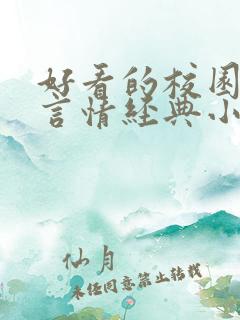 好看的校园
言情经典小
仙月
未经同意禁止转载